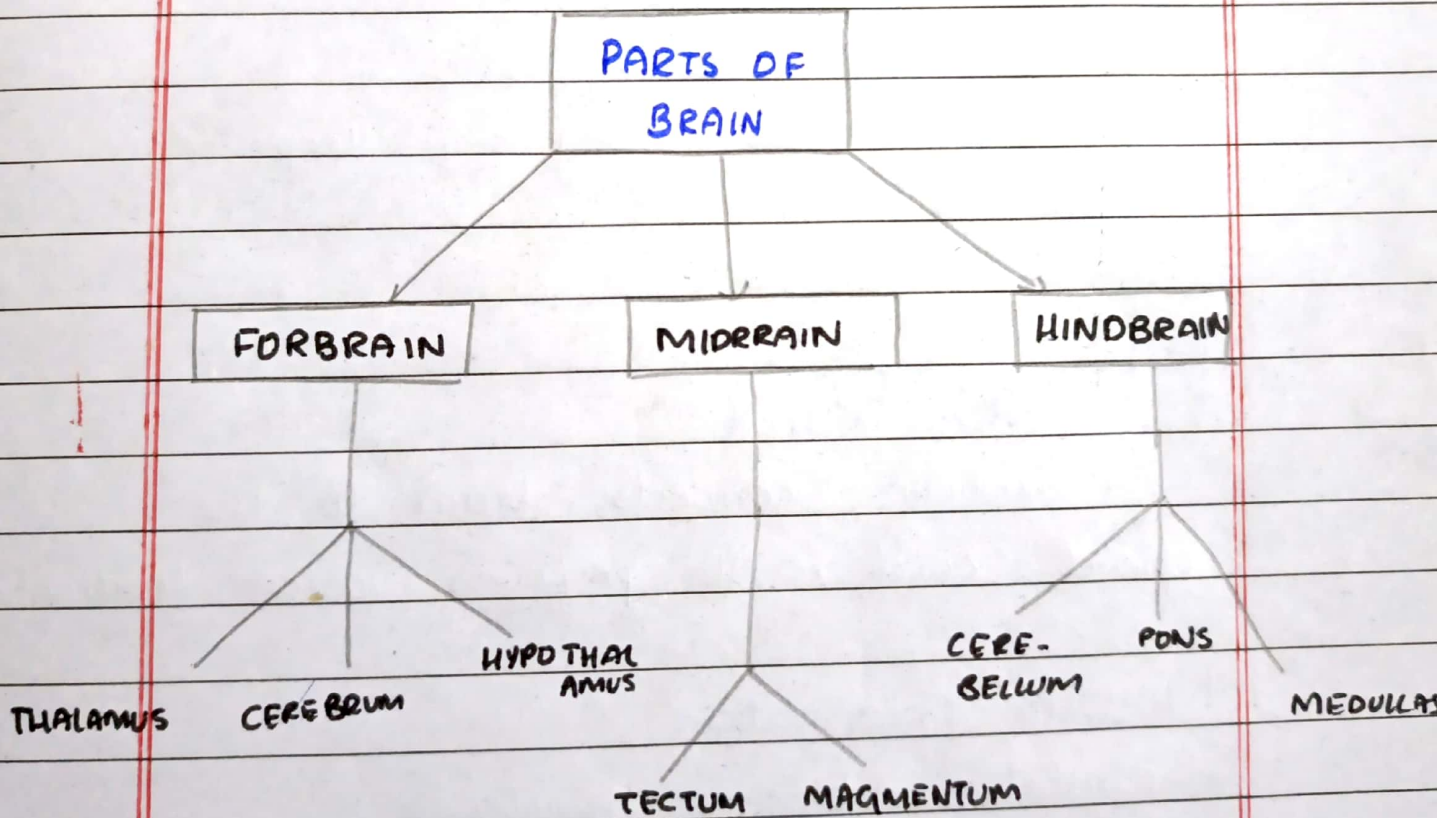 PARTS OF
BRAIN
FORBRAIN
MIDRRAIN
HINDBRAIN
THALAMUS
CEREBRUM
HYPOTHAL
AMUS
TECTUM
MAGMENTUM
CERE-
BELLUM
PONS
MEDULLAS